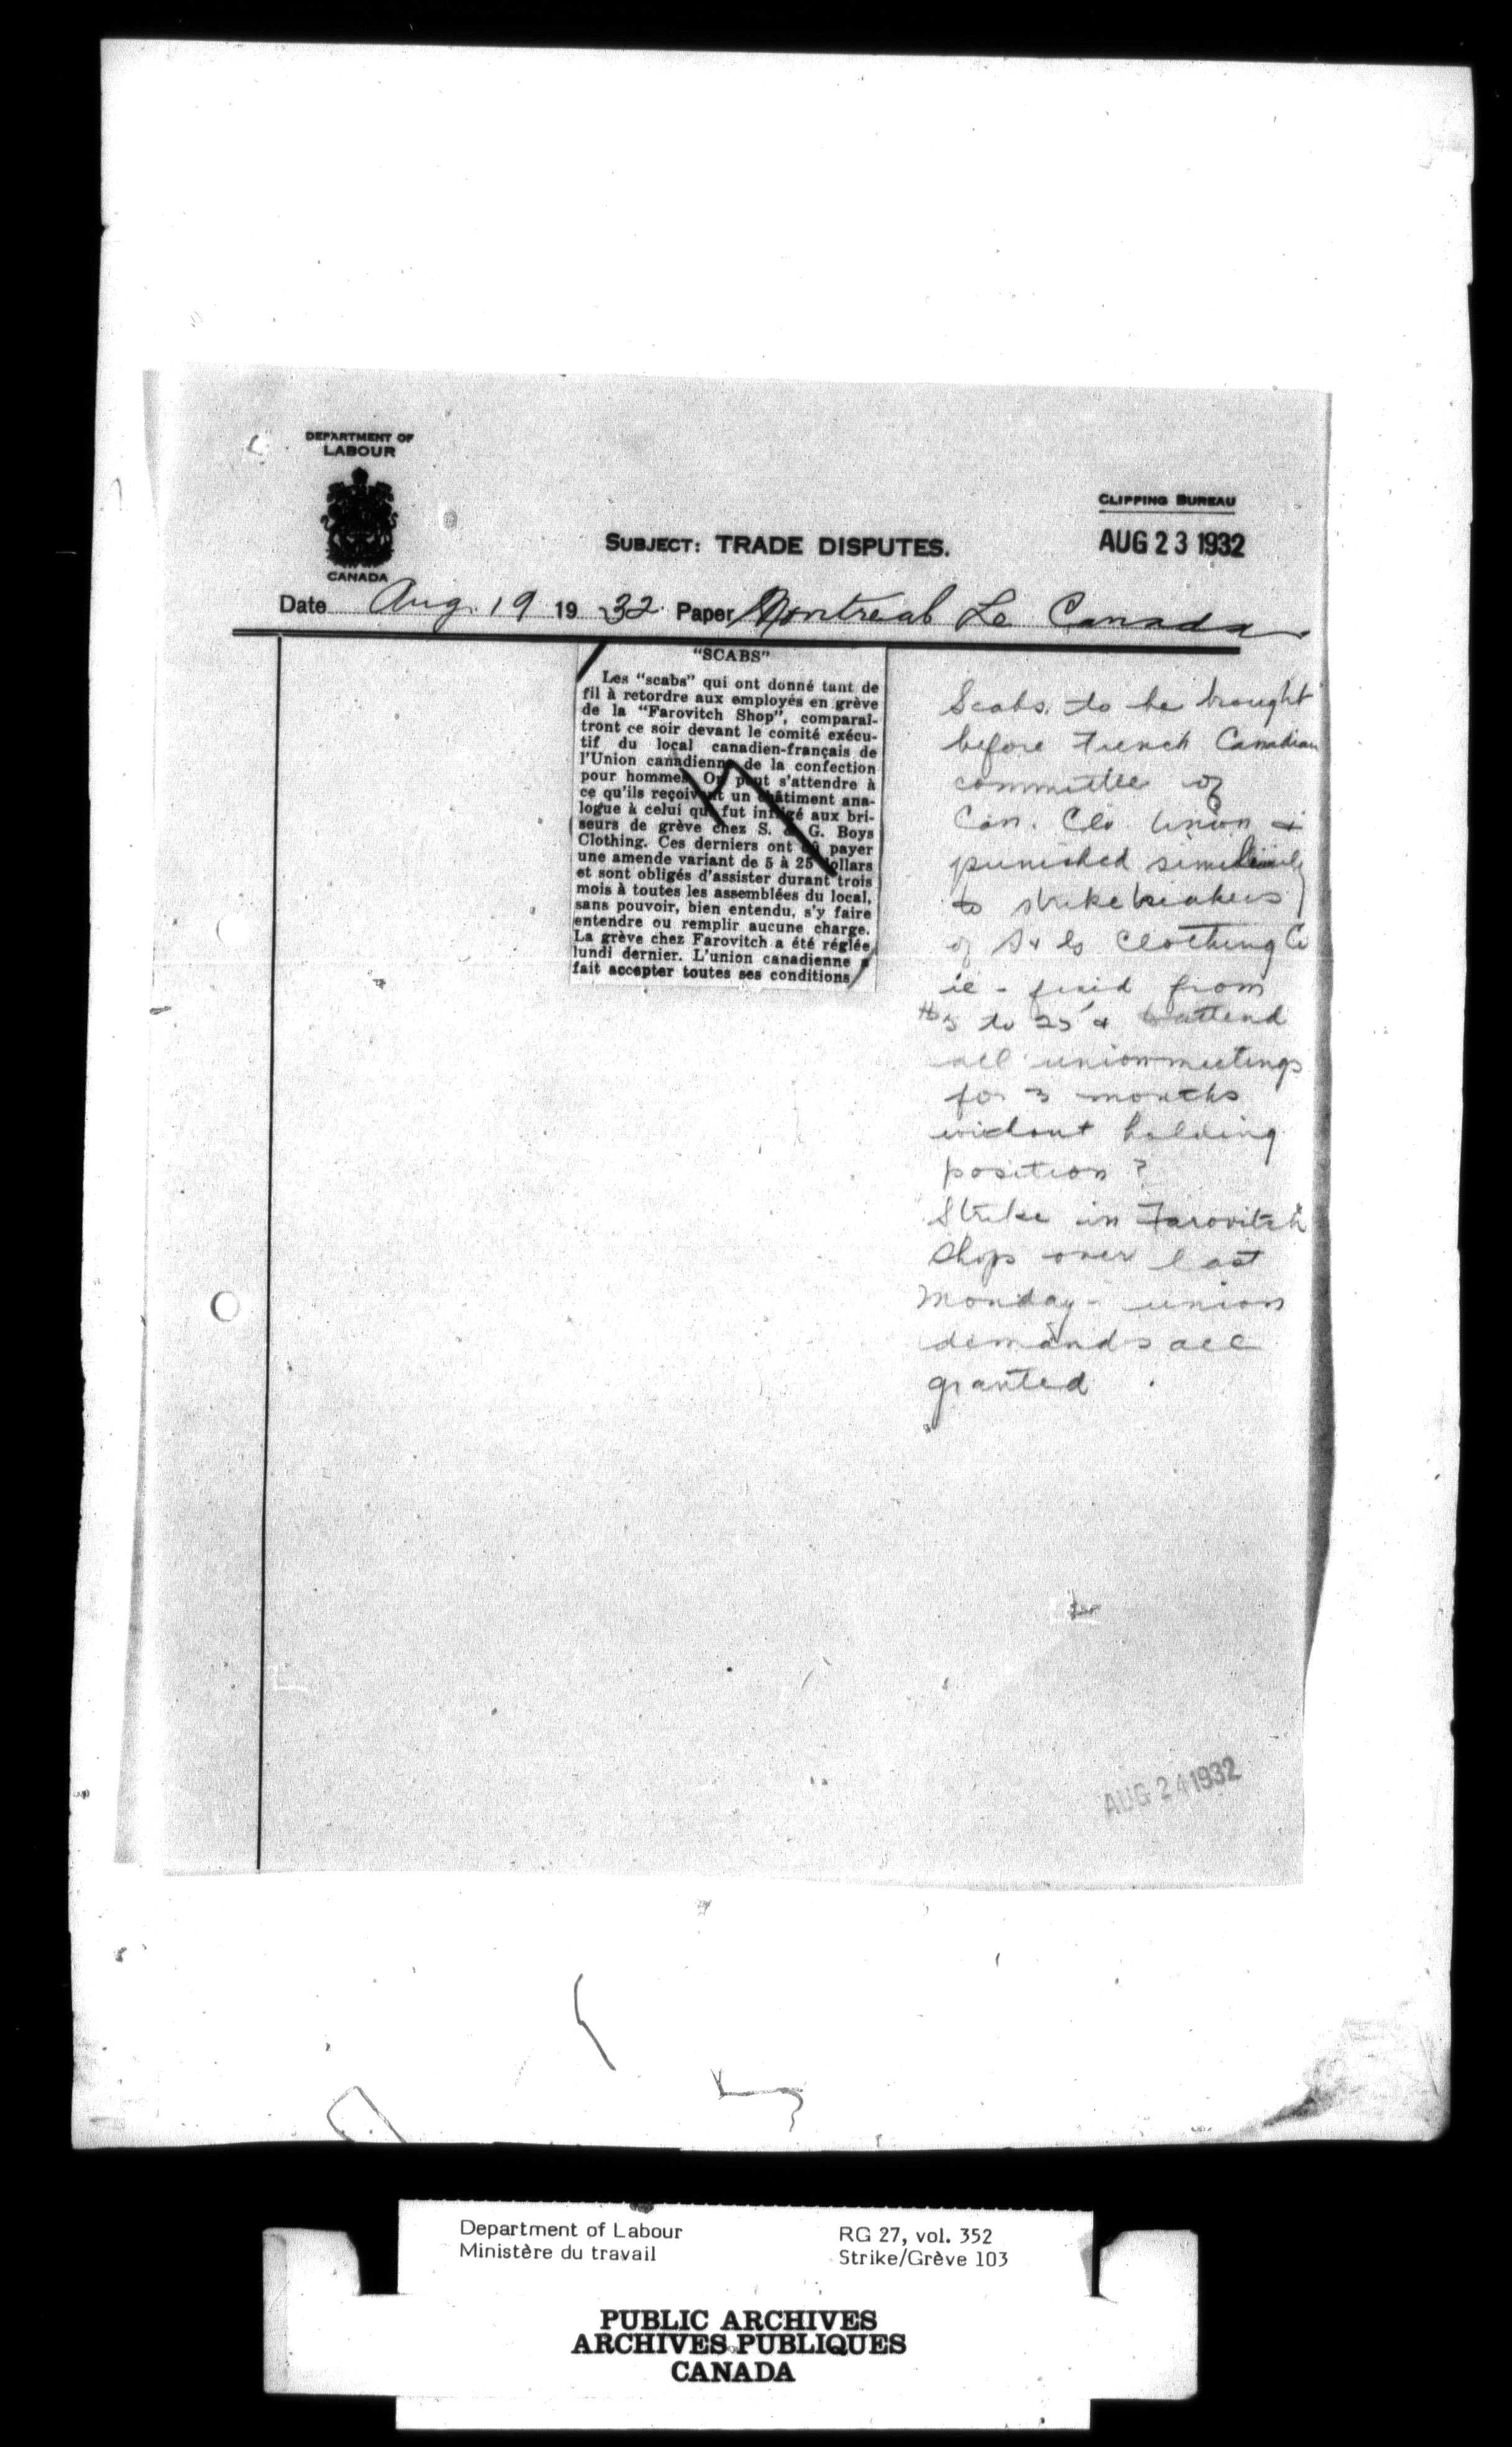 DEPARTMENT OF
LABOUR
CANADA
CLIPPING BUREAU
AUG 23 1932
SUBJECT: TRADE DISPUTES.
Date Aug. 19 19 32 Paper Montreal Le Canada
"SCABS"
Les "scabs" qui ont donné tant de
fil à retordre aux employés en grève
de la "Farovitch Shop", comparaî-
tront ce soir devant le comité exécu-
tif du local canadien-français de
l'Union canadienne de la confection
pour hommes. On peut s'attendre à
ce qu'ils reçoivent un châtiment ana-
logue à celui qui fut infligé aux bri-
seurs de grève chez S. & G. Boys
Clothing. Ces derniers ont dû payer
une amende variant de 5 à 25 dollars
et sont obligés d'assister durant trois
mois à toutes les assemblées du local,
sans pouvoir, bien entendu, s'y faire
entendre ou remplir aucune charge.
La grève chez Farovitch a été réglée
lundi dernier. L'union canadienne a
fait accepter toutes ses conditions
Scabs to be brought
before French Canadian
committee of
Can. Clo Union &
punished similarly
to strikebreakers
of S & G Clothing Co
ie - from
$5 to 25 & to attend
all union meetings
for 3 months
without holding
position?
Strike in Farovitch
Shop over last
Monday - union
demands all
granted.
AUG 24 1932
Department of Labour
Ministère du travail
RG 27, vol. 352
Strike/Grève 103
PUBLIC ARCHIVES
ARCHIVES PUBLIQUES
CANADA